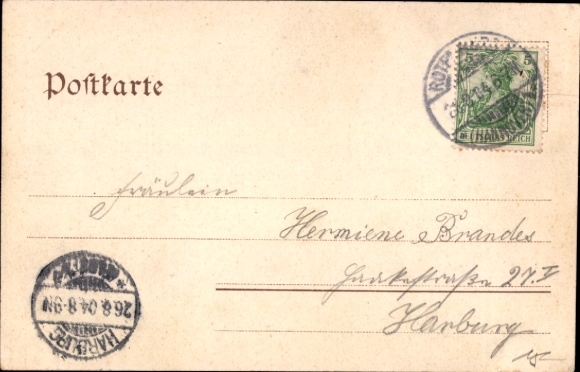 Postkarte
5 5
(HANN
REICH
Fräulein
Hermiene Brandes
Haakestraße 27 I
Harburg
26.8.04.8-9N
HARBURG